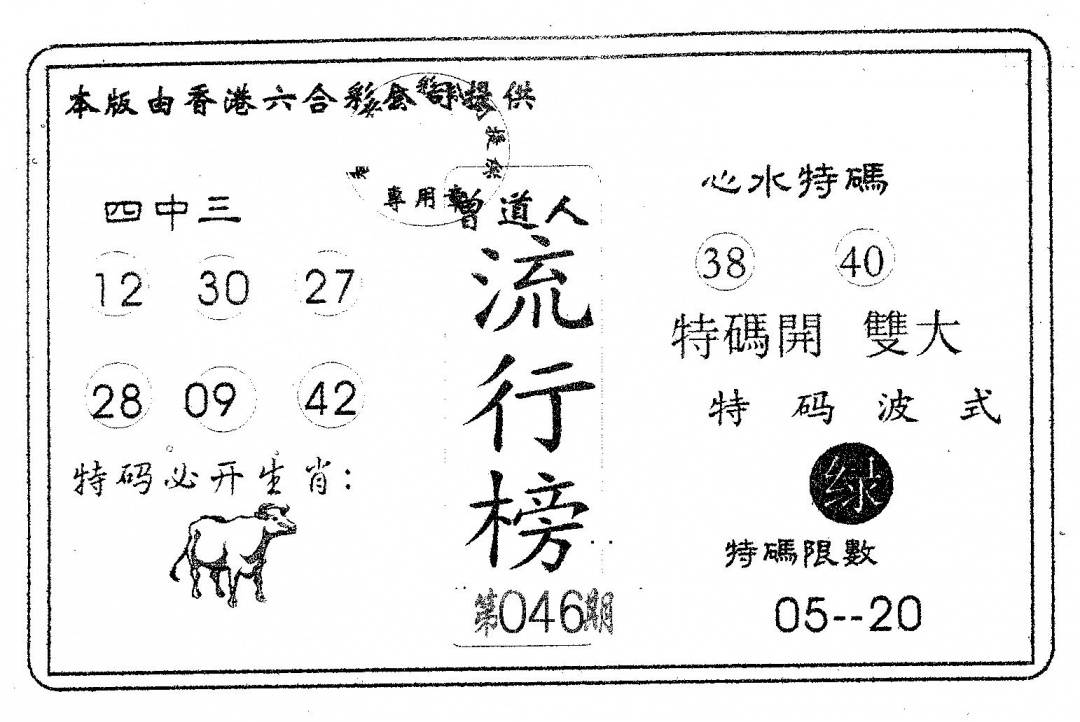 本版由香港六合彩公司提供
提供
專用章
四中三
12 30 27
28 09 42
特码必开生肖:
曾道人
流行榜
第046期
心水特碼
38 40
特碼開 雙大
特码波式
绿
特碼限數
05--20